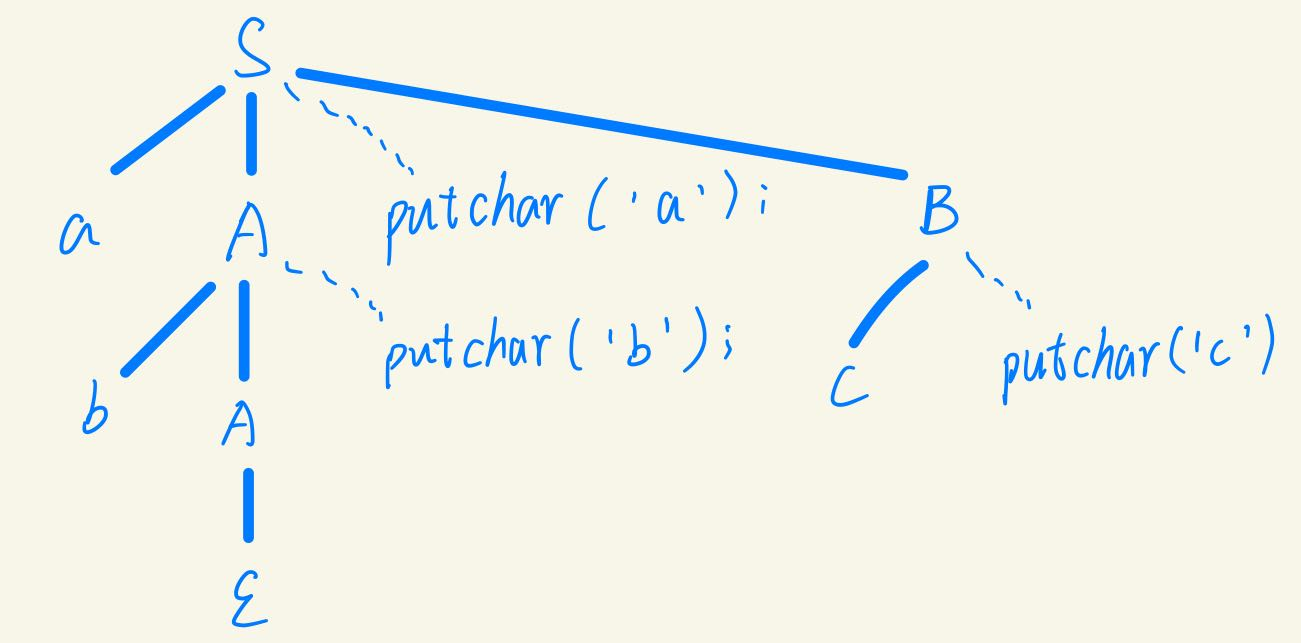 S
a A putchar('a'); B
b A putchar('b'); C putchar('c')
ε